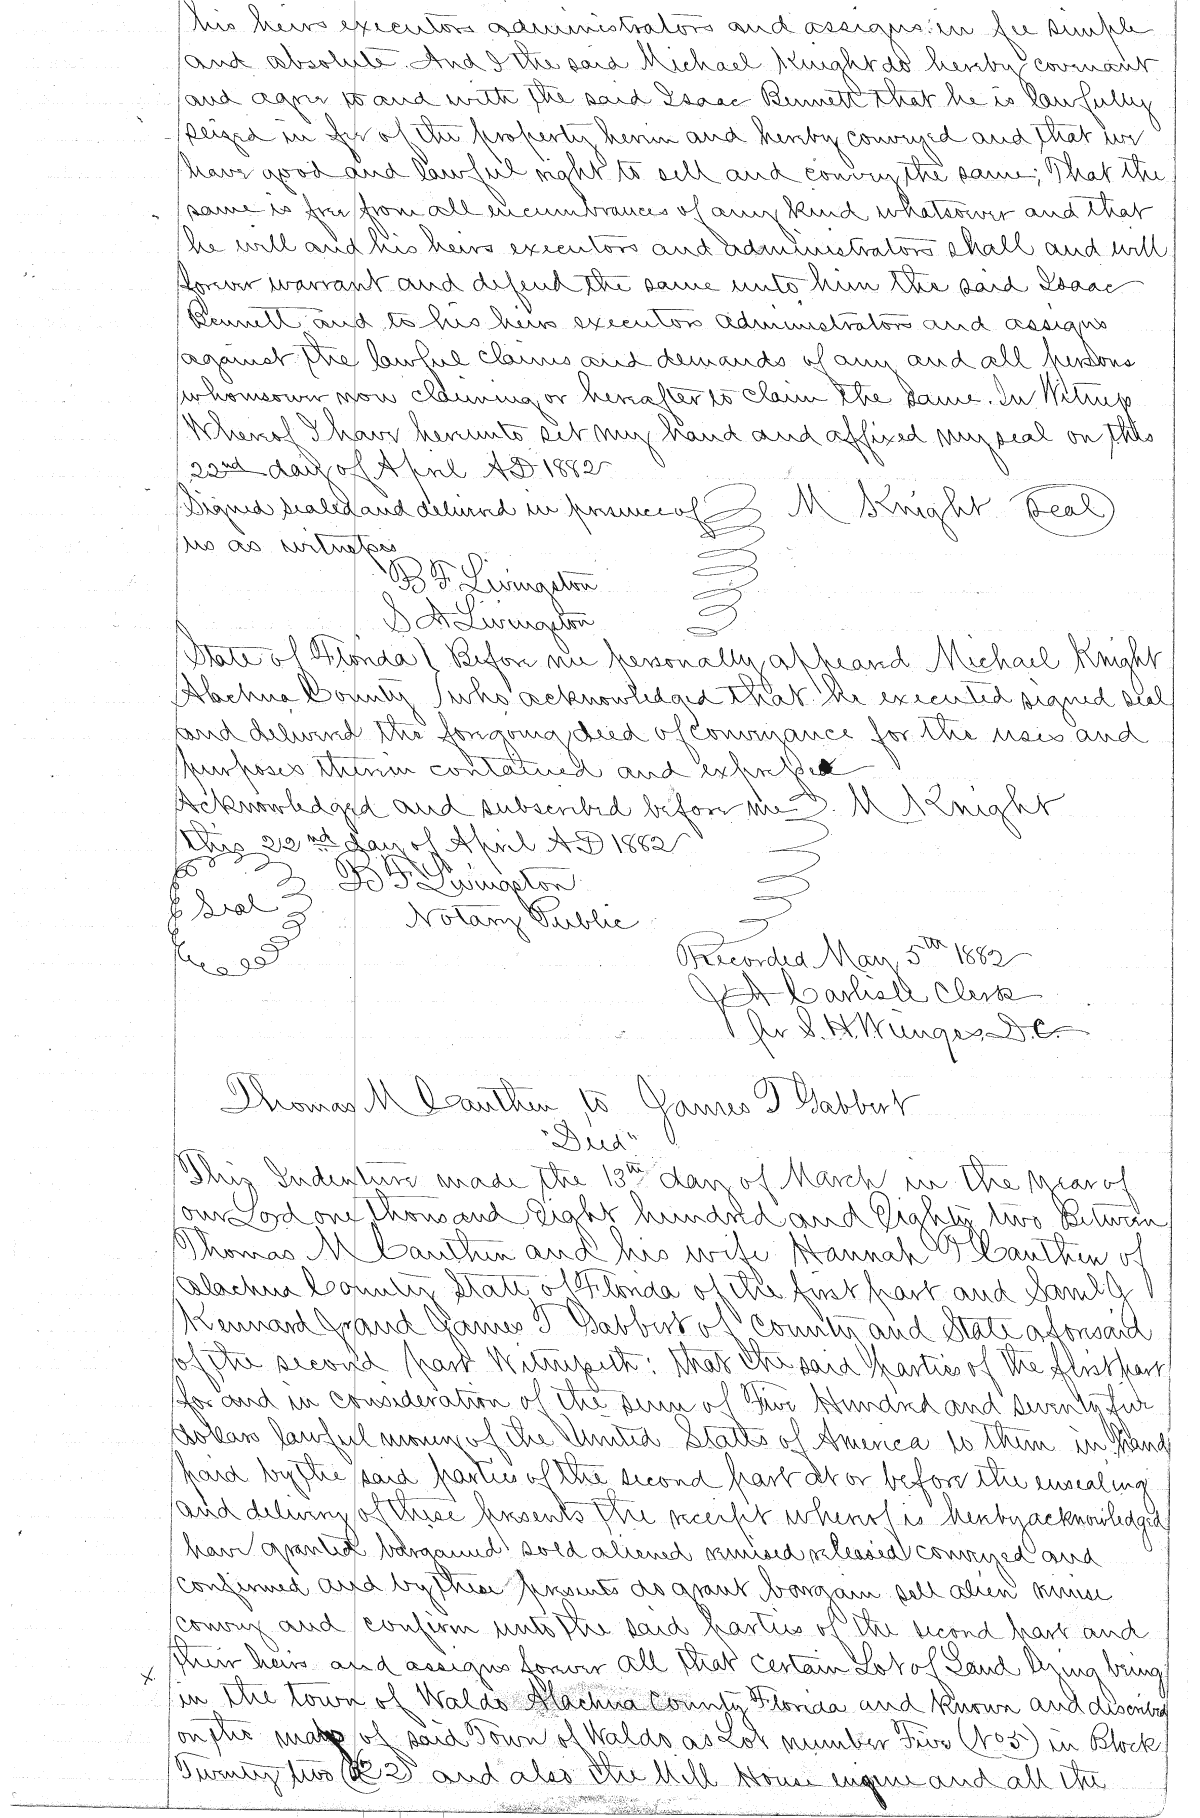 his heirs executors administrators and assigns in fee simple
and absolute. And I the said Michael Knight do hereby covenant
and agree to and with the said Isaac Bennett that he is lawfully
seized in fee of the property herein and hereby conveyed and that we
have good and lawful right to sell and convey the same; That the
same is free from all incumbrances of any kind whatsoever and that
he will and his heirs executors and administrators shall and will
forever warrant and defend the same unto him the said Isaac
Bennett and to his heirs executors administrators and assigns
against the lawful claims and demands of any and all persons
whomsoever now claiming or hereafter to claim the same. In Witness
Whereof I have hereunto set my hand and affixed my seal on this
22nd day of April AD 1882
Signed sealed and delivered in presence of M Knight Seal
us as witnesses
B F Livingston
S A Livingston
State of Florida ( Before me personally appeared Michael Knight
Alachua County ( who acknowledged that he executed signed seal
and delivered the foregoing deed of conveyance for the uses and
purposes therein contained and expressed
Acknowledged and subscribed before me M Knight
this 22nd day of April AD 1882
Seal B F Livingston
Notary Public
Recorded May 5th 1882
J A Carlisle Clerk
per S. H. Wienges, D.C.
Thomas M Cauthen to James T Gabbert
"Deed"
This Indenture made the 13th day of March in the year of
our Lord one thousand Eight hundred and Eighty two Between
Thomas M Cauthen and his wife Hannah T Cauthen of
Alachua County State of Florida of the first part and Saml G
Kennard Jr and James T Gabbert of County and State aforesaid
of the second part Witnesseth: that the said parties of the first part
for and in consideration of the sum of Five Hundred and seventy five
dollars lawful money of the United States of America to them in hand
paid by the said parties of the second part at or before the ensealing
and delivery of these presents the receipt whereof is hereby acknowledged
have granted bargained sold aliened remised released conveyed and
confirmed and by these presents do grant bargain sell alien remise
convey and confirm unto the said parties of the second part and
x their heirs and assigns forever all that certain Lot of Land lying being
in the town of Waldo Alachua County Florida and known and described
on the map of said Town of Waldo as Lot number Five (No 5) in Block
Twenty two (22) and also the Mill House engine and all the